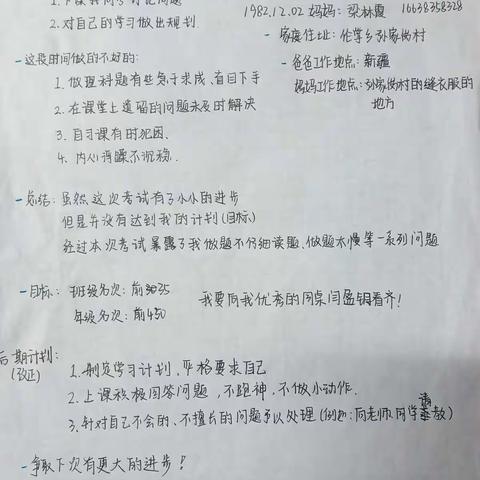 2.对自己的学习做出规划.
1982.12.02 妈妈: 梁林霞 16638358328
- 家庭住址:伦掌乡孙家岗村
- 这段时间做的不好的:
- 爸爸工作地点:新疆
1. 做理科题有些急于求成、盲目下手
妈妈工作地点:孙家岗村的缝衣服的
地方
2. 在课堂上遗留的问题未及时解决
3. 自习课有时犯困.
4. 内心浮躁不沉稳.
- 总结: 虽然这次考试有了小小的进步
但是并没有达到我的计划(目标)
经过本次考试暴露了我做题不仔细读题、做题太慢等一系列问题
- 目标: 班级名次: 前35
我要向我优秀的同桌闫盈钥看齐!
年级名次: 前450
后期计划:
(改正)
1.制定学习计划,严格要求自己
2.上课积极回答问题,不跑神,不做小动作.
3.针对自己不会的、不擅长的问题予以处理(例如:向老师、同学请教)
- 争取下次有更大的进步!